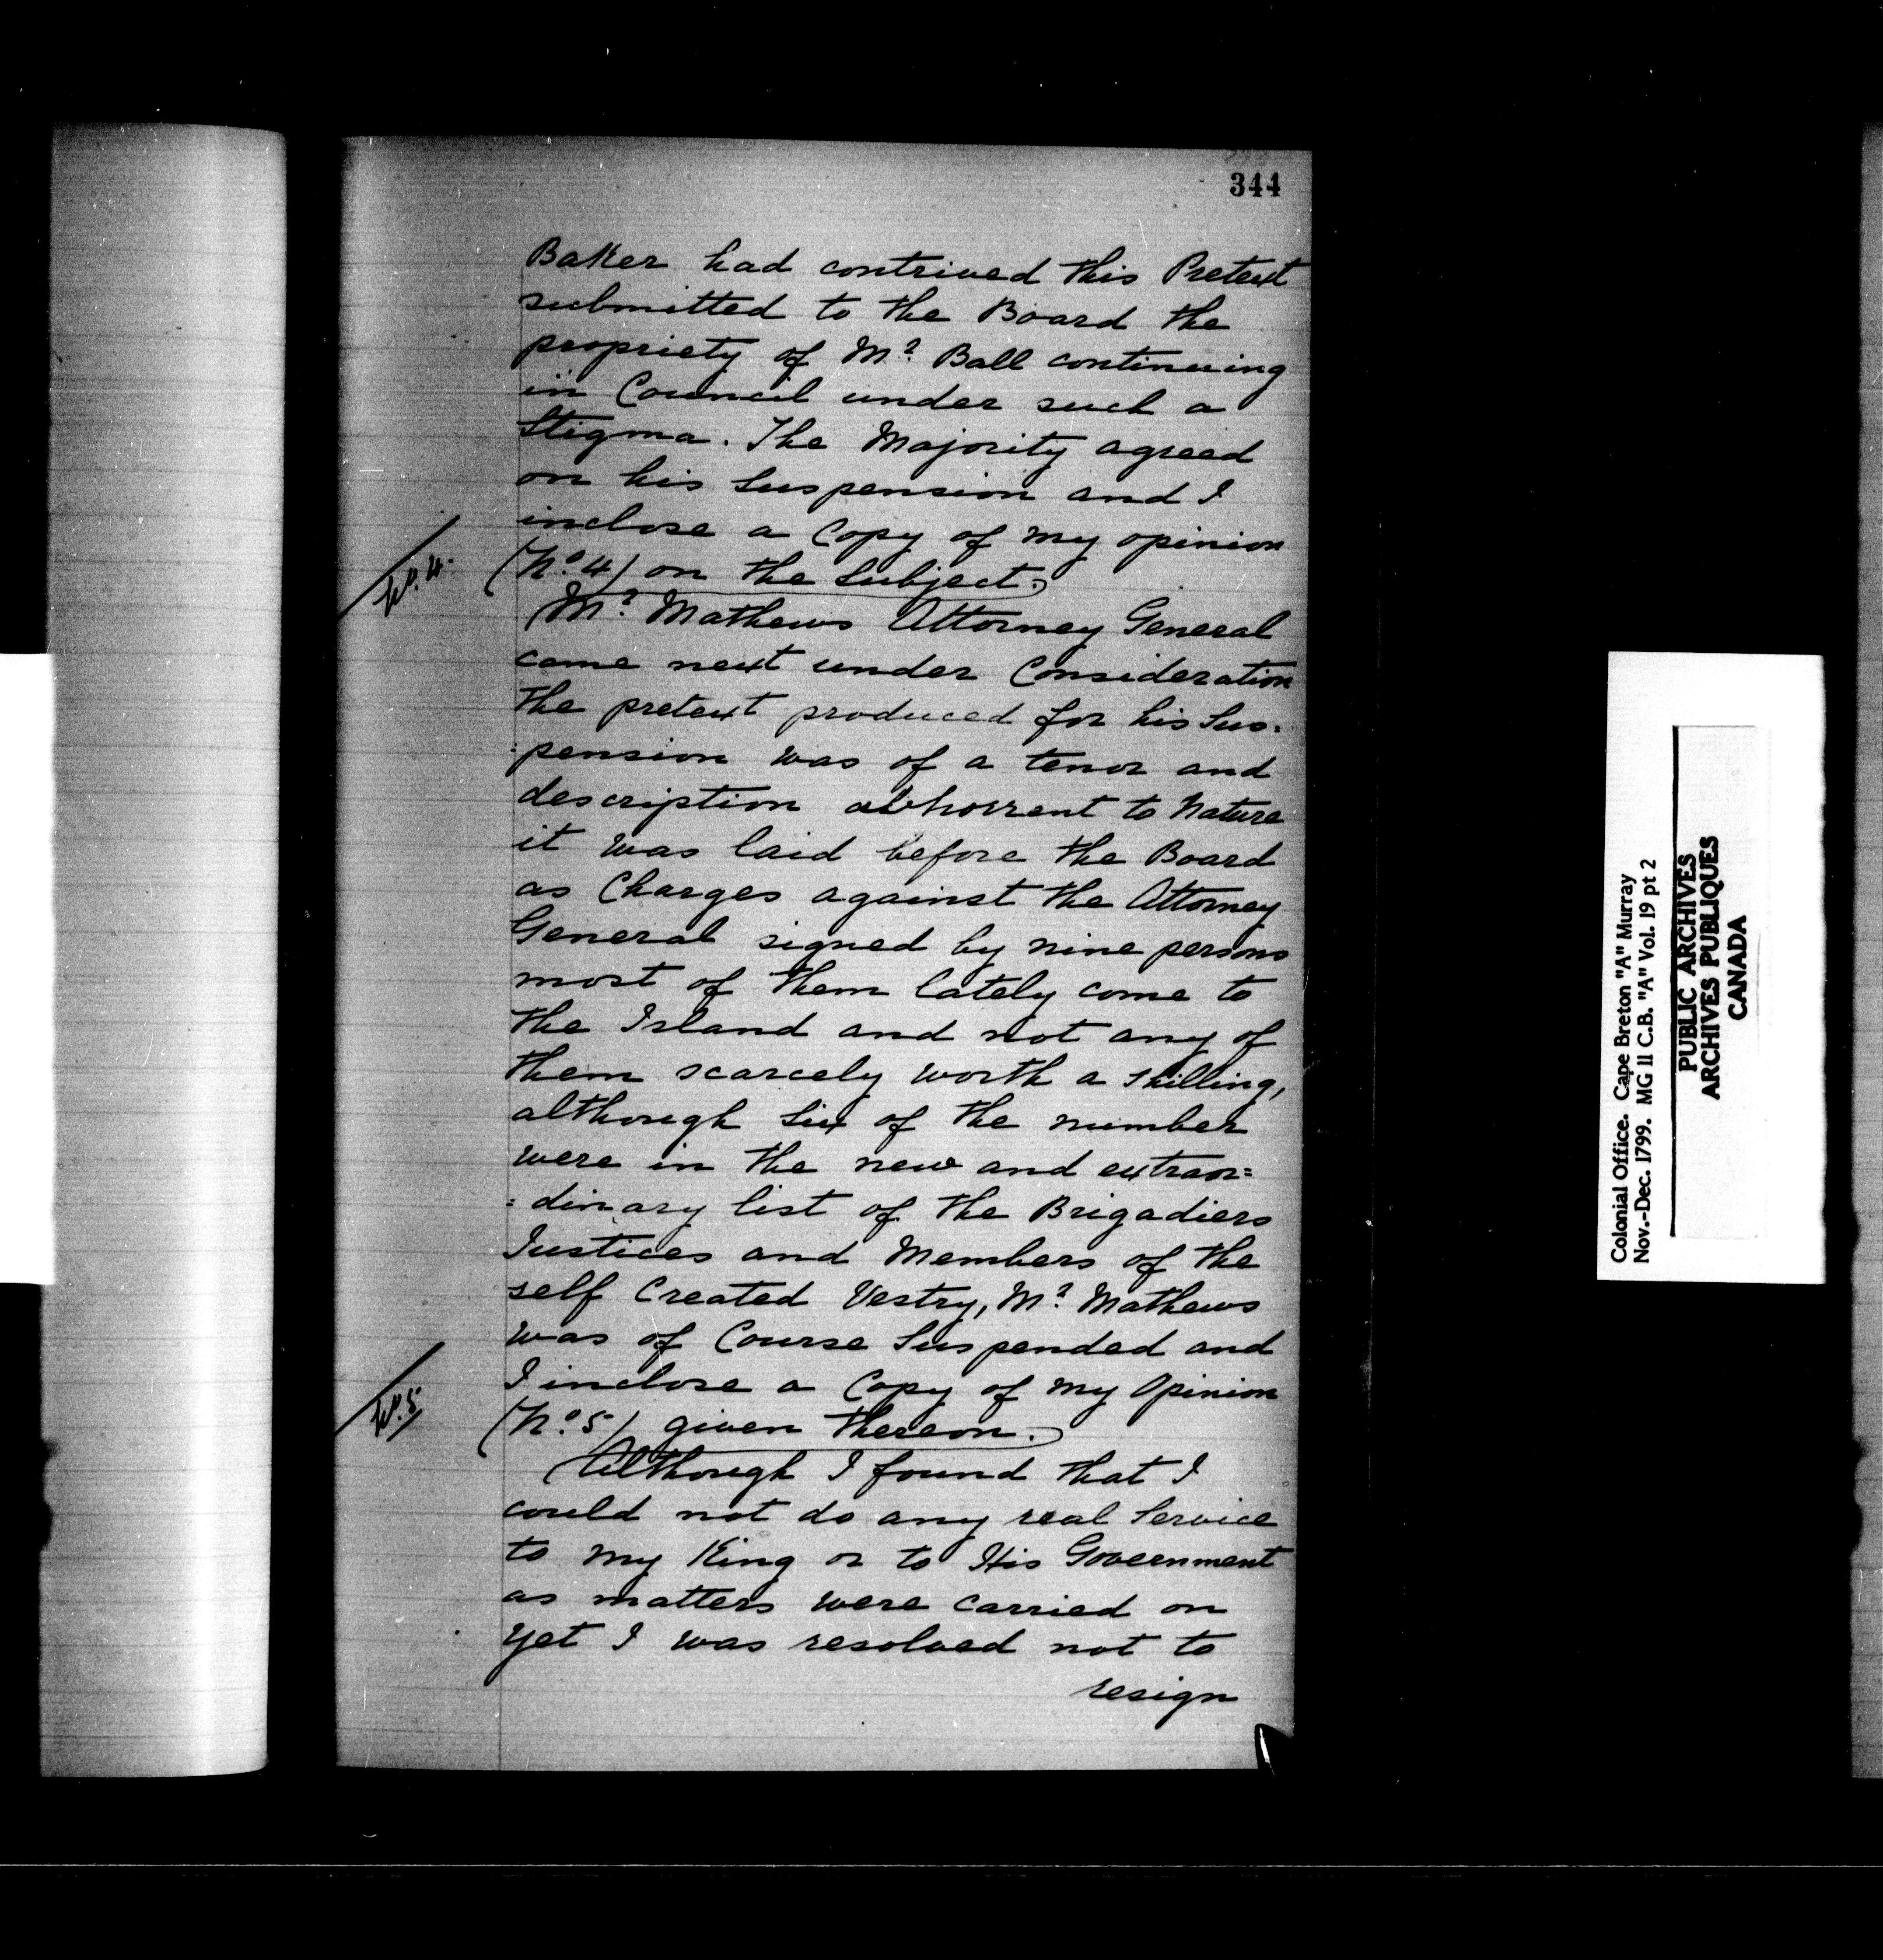 344
Baker had contrived this Pretext
submitted to the Board the
propriety of Mr. Ball continuing
in Council under such a
Stigma. The Majority agreed
on his Suspension and I
inclose a Copy of my opinion
(No. 4) on the Subject.
No. 4.
Mr. Mathews Attorney General
came next under Consideration
the pretext produced for his Sus=
=pension was of a tenor and
description abhorrent to Nature
it was laid before the Board
as Charges against the Attorney
General signed by nine persons
most of them lately come to
the Island and not any of
them scarcely worth a shilling,
although Six of the number
were in the new and extraor=
=dinary list of the Brigadiers
Justices and Members of the
self Created Vestry, Mr. Mathews
was of Course Suspended and
I inclose a Copy of my Opinion
(No. 5) given thereon.
No. 5
Although I found that I
could not do any real Service
to my King or to His Government
as matters were carried on
yet I was resolved not to
resign
Colonial Office. Cape Breton "A" Murray
Nov.-Dec. 1799. MG 11 C.B. "A" Vol. 19 pt 2
PUBLIC ARCHIVES
ARCHIVES PUBLIQUES
CANADA